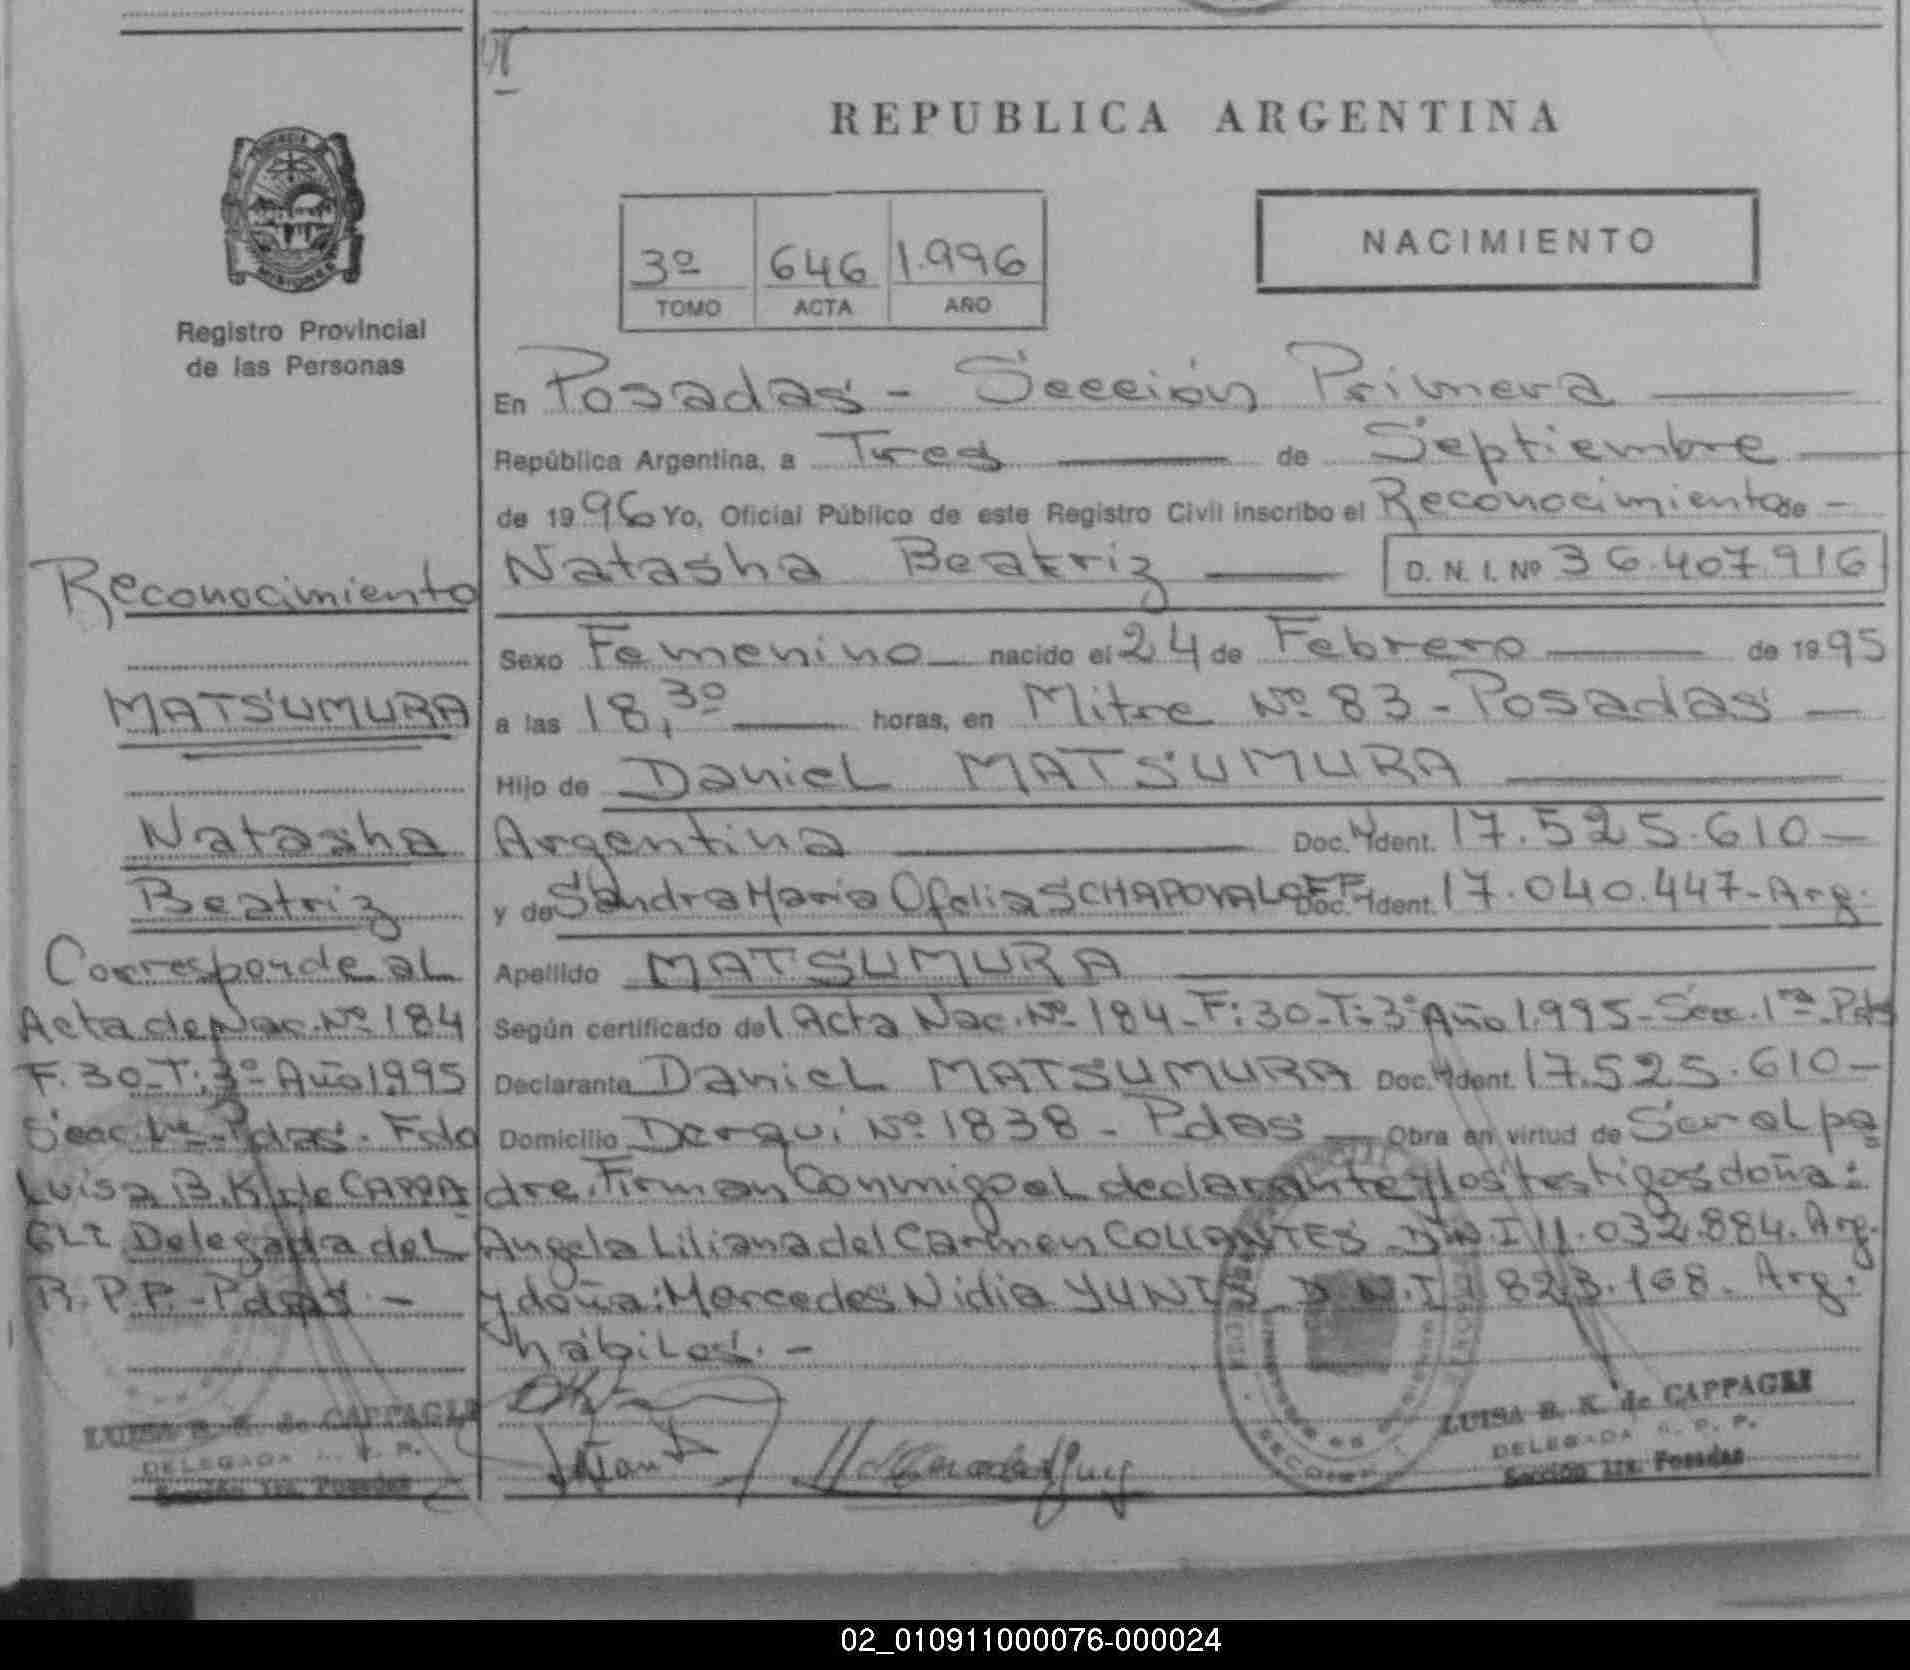 REPUBLICA ARGENTINA
Registro Provincial
de las Personas
3º 646 1.996
TOMO ACTA AÑO
NACIMIENTO
En Posadas - Sección Primera
República Argentina, a Tres de Septiembre
de 1996 Yo, Oficial Público de este Registro Civil inscribo el Reconocimiento de -
Natasha Beatriz D. N. I. Nº 36.407.916
Sexo Femenino nacido el 24 de Febrero de 1995
a las 18,30 horas, en Mitre Nº 83 - Posadas -
Hijo de Daniel MATSUMURA
Argentina Doc. Ident. 17.525.610 -
y de Sandra María Ofelia SCHAPOVALOFF Doc. Ident. 17.040.447 - Arg.
Apellido MATSUMURA
Según certificado del Acta Nac. Nº 184 - F: 30 - T: 3º Año 1.995 - Sec. 1ra - Pdas
Declarante Daniel MATSUMURA Doc. Ident. 17.525.610 -
Domicilio Derqui Nº 1838 - Pdas Obra en virtud de Ser al pa
dre. Firman Conmigo el declarante y los testigos doña:
Angela Liliana del Carmen COLLANTES D.N.I 11.032.884. Arg.
y doña: Mercedes Nidia YUNIS D.N.I 823.168. Arg.
hábiles. -
Reconocimiento
MATSUMURA
Natasha
Beatriz
Corresponde al
Acta de Nac. Nº 184
F. 30 - T: 3º - Año 1,995
Secc. 1ra - Pdas. Fdo
Luisa B. K. de CAPPA
GLI Delegada del
R.P.P. - Pdas. -
LUISA B. K. de CAPPAGLI
DELEGADA R. P. P.
Sección 1ra. Posadas
LUISA B. K. de CAPPAGLI
DELEGADA R. P. P.
Sección 1ra. Posadas
02_010911000076-000024